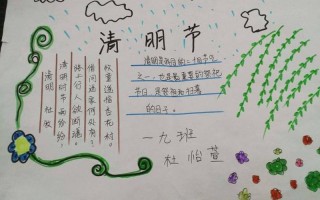 清明节
清明 杜牧
清明时节雨纷纷，
路上行人欲断魂。
借问酒家何处有？
牧童遥指杏花村。
清明是我们的二十四节气
之一，也是最重要的祭祀
节日，是祭祖和扫墓
的日子。
一九班
杜怡萱